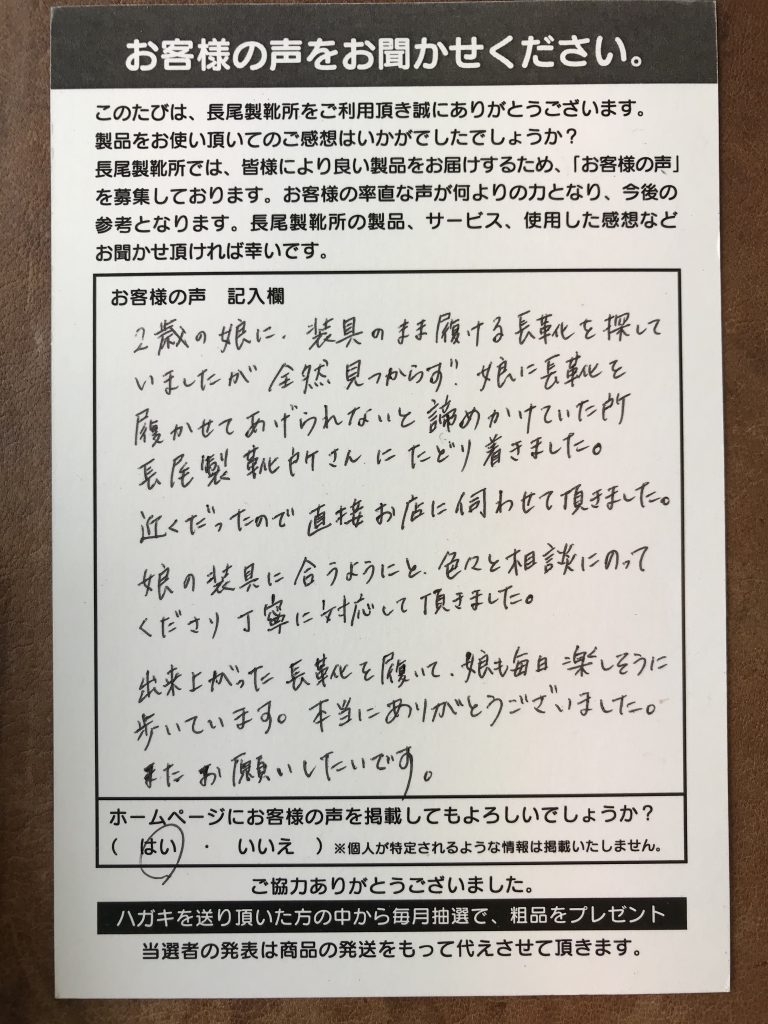 お客様の声をお聞かせください。
このたびは、長尾製靴所をご利用頂き誠にありがとうございます。
製品をお使い頂いてのご感想はいかがでしたでしょうか？
長尾製靴所では、皆様により良い製品をお届けするため、「お客様の声」
を募集しております。お客様の率直な声が何よりの力となり、今後の
参考となります。長尾製靴所の製品、サービス、使用した感想など
お聞かせ頂ければ幸いです。
お客様の声　記入欄
2歳の娘に、装具のまま履ける長靴を探して
いましたが全然見つからず、娘に長靴を
履かせてあげられないと諦めかけていた所
長尾製靴所さんにたどり着きました。
近くだったので直接お店に伺わせて頂きました。
娘の装具に合うようにと、色々と相談にのって
くださり丁寧に対応して頂きました。
出来上がった長靴を履いて、娘も毎日楽しそうに
歩いています。本当にありがとうございました。
またお願いしたいです。
ホームページにお客様の声を掲載してもよろしいでしょうか？
（　はい　・　いいえ　）※個人が特定されるような情報は掲載いたしません。
ご協力ありがとうございました。
ハガキを送り頂いた方の中から毎月抽選で、粗品をプレゼント
当選者の発表は商品の発送をもって代えさせて頂きます。